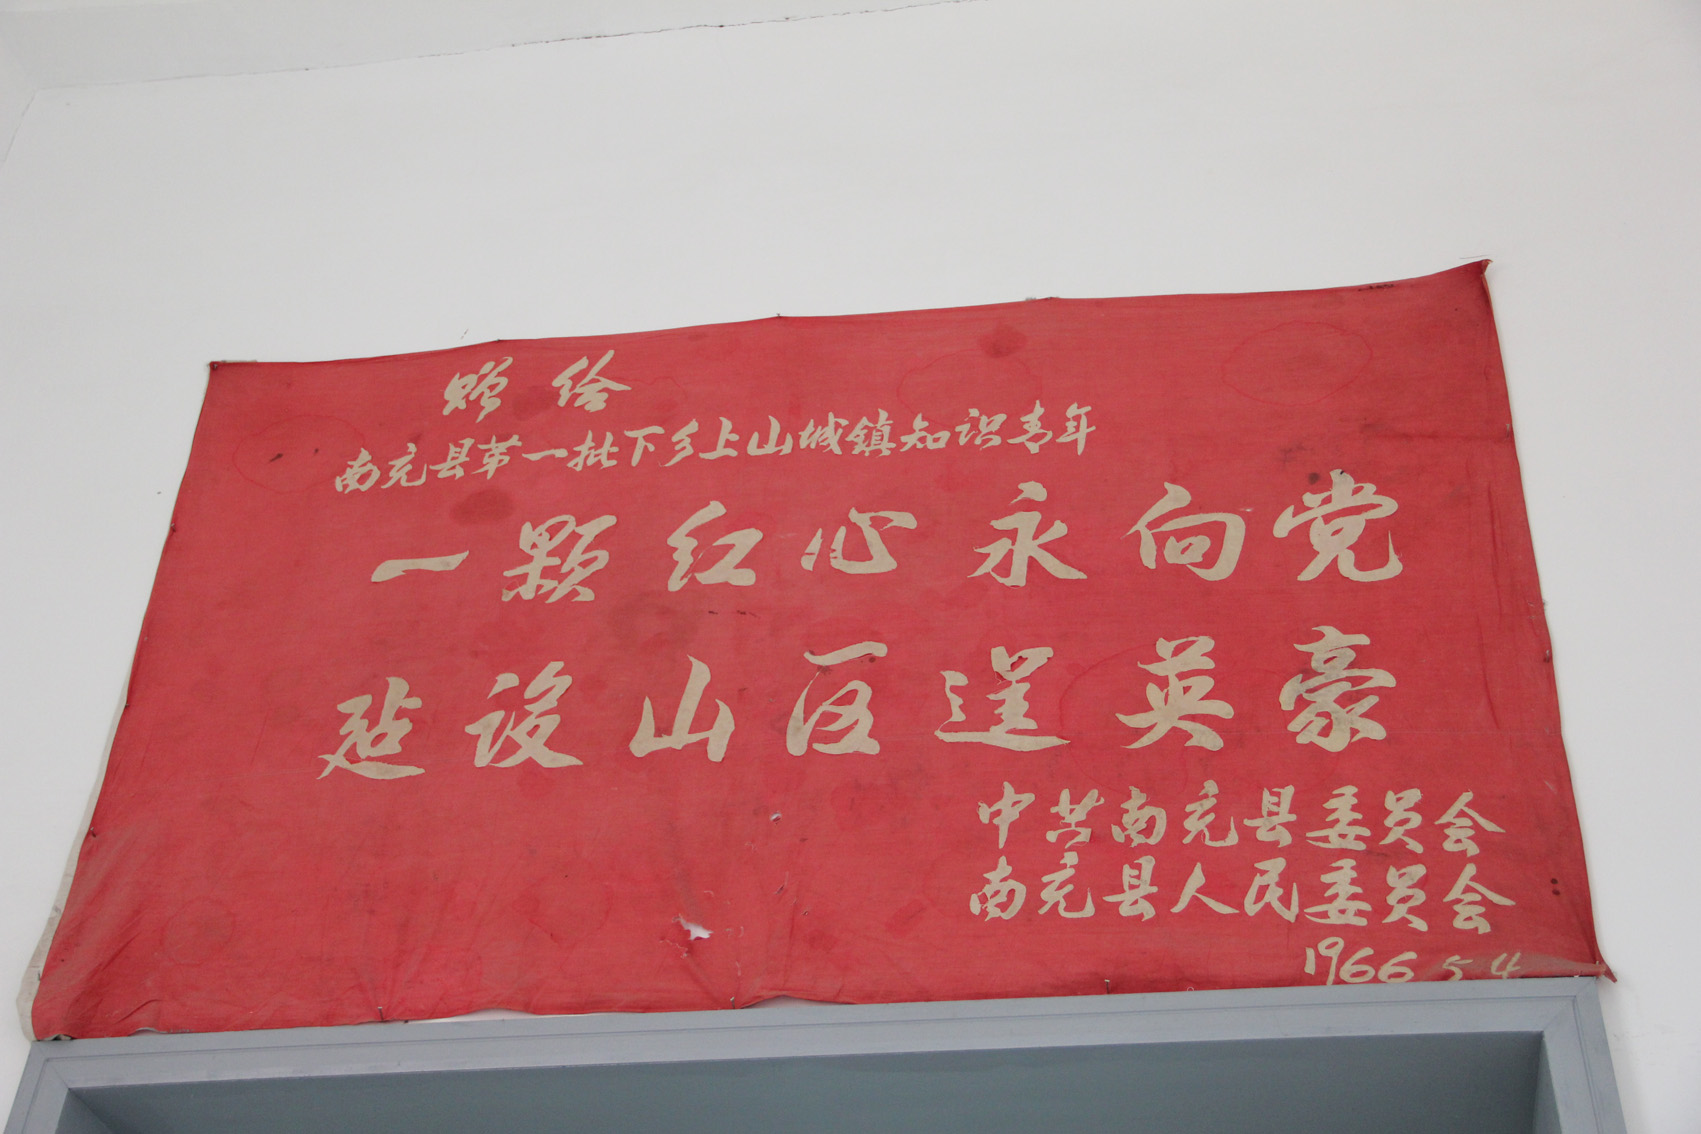 赠给
南充县第一批下乡上山城镇知识青年
一颗红心永向党
建设山区逞英豪
中共南充县委员会
南充县人民委员会
1966 5 4